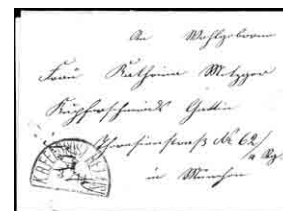 An Wohlgeboren
Frau Kathrina Metzger
Kupferschmids Gattin
Theresienstraß № 62/
in München